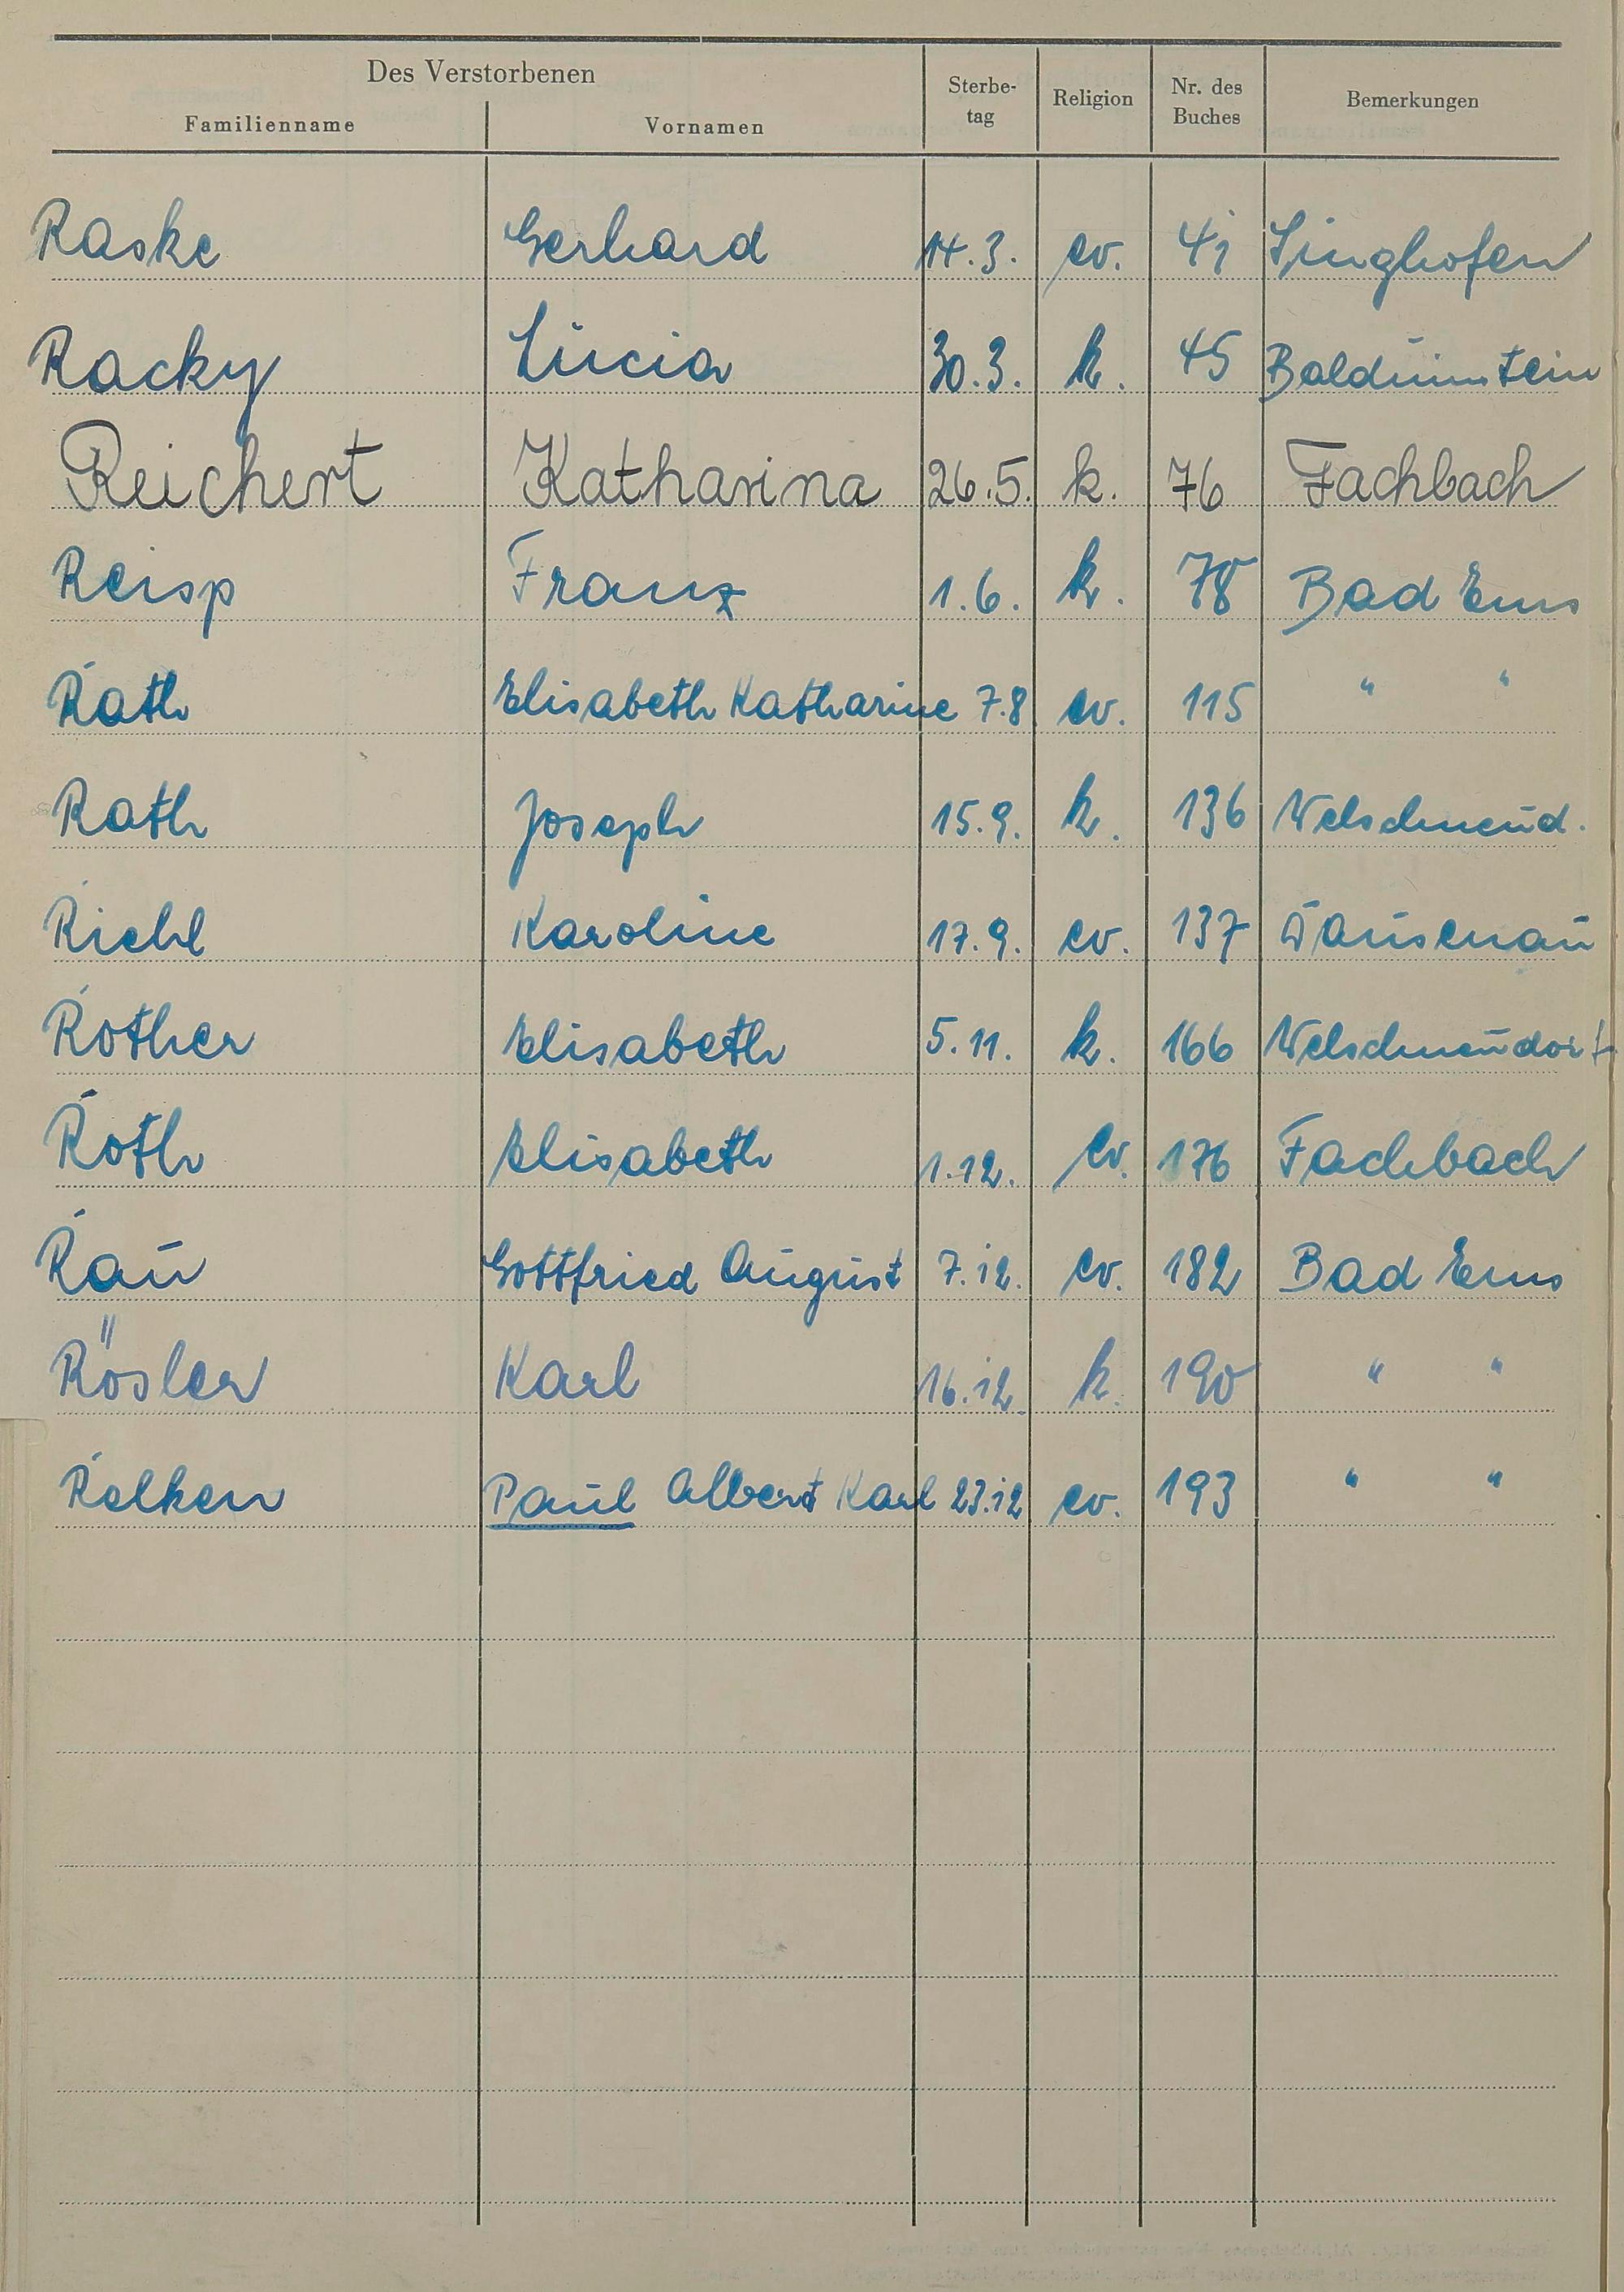 Des Verstorbenen
Familienname Vornamen Sterbe- tag Religion Nr. des Buches Bemerkungen
Raske Gerhard 14.3. ev. 41 Singhofen
Racky Lucia 30.3. k. 45 Balduinstein
Reichert Katharina 26.5. k. 76 Fachbach
Reisp Franz 1.6. k. 78 Bad Ems
Rath Elisabeth Katharine 7.8 ev. 115 " "
Rath Joseph 15.9. k. 136 Welschneud.
Riehl Karoline 17.9. ev. 137 Dausenau
Rother Elisabeth 5.11. k. 166 Welschneudorf
Roth Elisabeth 1.12. ev. 176 Fachbach
Rau Gottfried August 7.12. ev. 182 Bad Ems
Rösler Karl 16.12. k. 190 " "
Relken Paul Albert Karl 23.12 ev. 193 " "